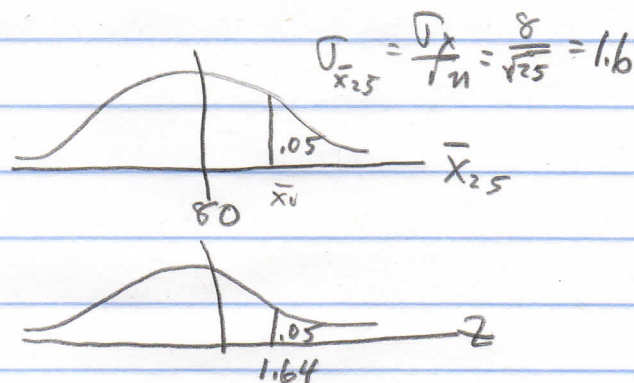 σx̄₂₅ = σx/√n = 8/√25 = 1.6
.05
x̄₂₅
80
.05
z
1.64